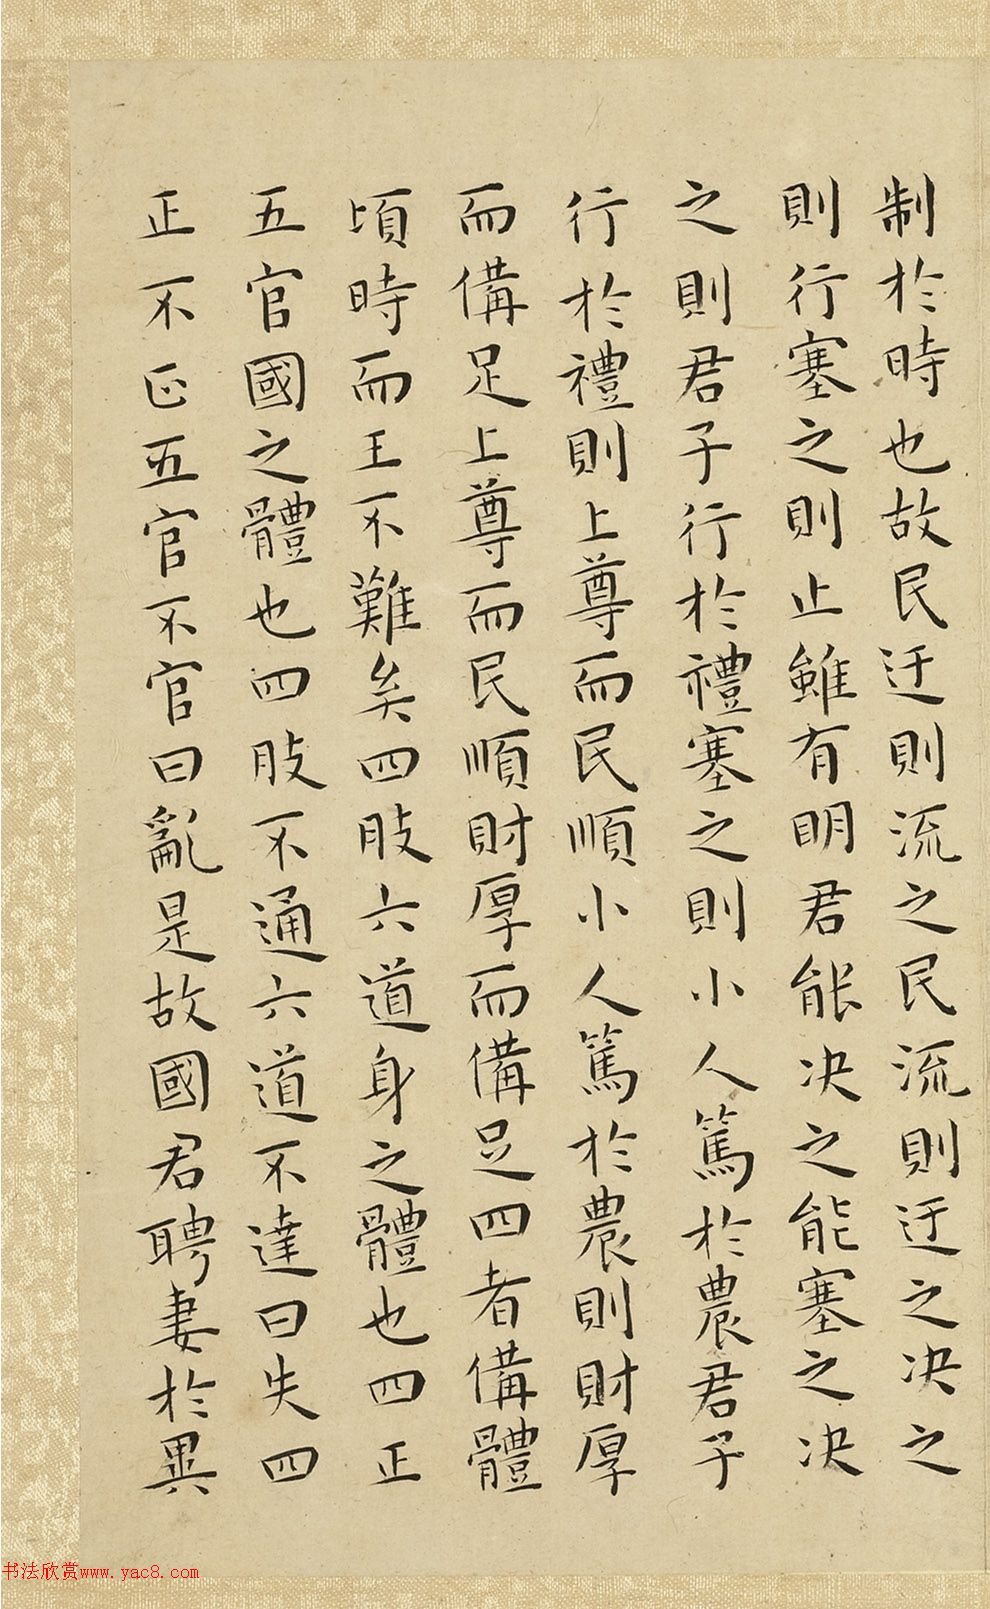 制於時也故民迂則流之民流則迂之决之
則行塞之則止雖有明君能决之能塞之决
之則君子行行於禮塞之則小人篤於農君子
行於禮則上尊而民順小人篤於農則財厚
而備足上尊而民順財厚而備足四者備體
頃時而王不難矣四肢六道身之體也四正
五官國之體也四肢不通六道不達曰失四
正不正五官不官曰亂是故國君聘妻於異
书法欣赏www.yac8.com